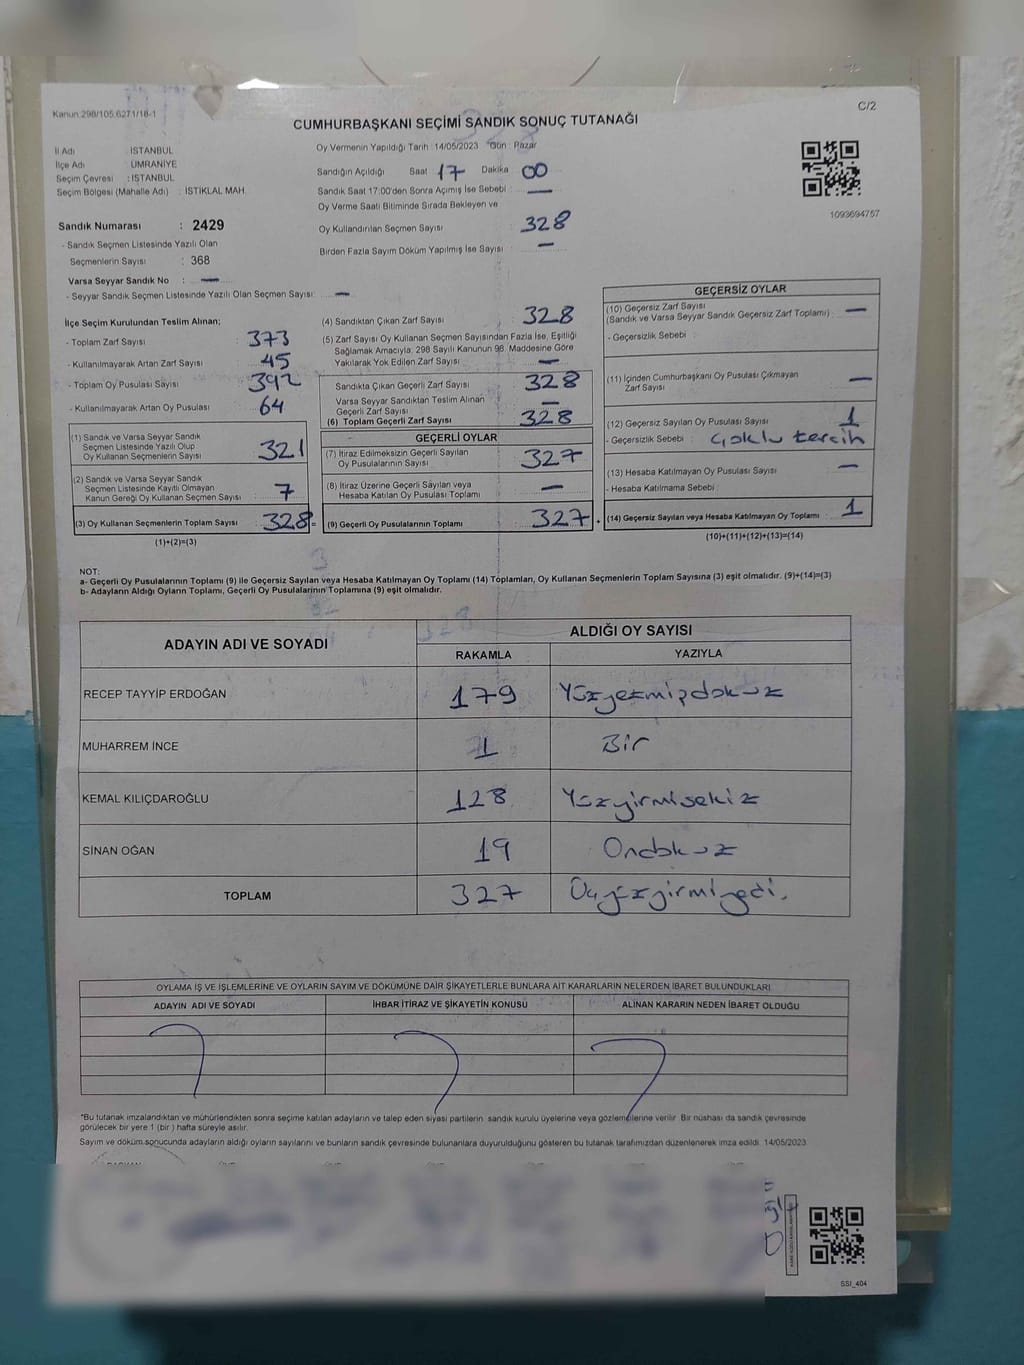 Kanun:298/105;6271/18-1
C/2
CUMHURBAŞKANI SEÇİMİ SANDIK SONUÇ TUTANAĞI
İl Adı : İSTANBUL
İlçe Adı : ÜMRANİYE
Seçim Çevresi : İSTANBUL
Seçim Bölgesi (Mahalle Adı) : İSTİKLAL MAH.
Sandık Numarası : 2429
- Sandık Seçmen Listesinde Yazılı Olan
Seçmenlerin Sayısı : 368
Varsa Seyyar Sandık No : —
- Seyyar Sandık Seçmen Listesinde Yazılı Olan Seçmen Sayısı: —
Oy Vermenin Yapıldığı Tarih : 14/05/2023 Gün : Pazar
Sandığın Açıldığı Saat 17 Dakika 00
Sandık Saat 17:00'den Sonra Açımış İse Sebebi : —
Oy Verme Saati Bitiminde Sırada Bekleyen ve
Oy Kullandırılan Seçmen Sayısı : 328
Birden Fazla Sayım Döküm Yapılmış İse Sayısı : —
1093694757
İlçe Seçim Kurulundan Teslim Alınan;
- Toplam Zarf Sayısı : 373
- Kullanılmayarak Artan Zarf Sayısı : 45
- Toplam Oy Pusulası Sayısı : 392
- Kullanılmayarak Artan Oy Pusulası : 64
(1) Sandık ve Varsa Seyyar Sandık
Seçmen Listesinde Yazılı Olup
Oy Kullanan Seçmenlerin Sayısı : 321
(2) Sandık ve Varsa Seyyar Sandık
Seçmen Listesinde Kayıtlı Olmayan
Kanun Gereği Oy Kullanan Seçmen Sayısı : 7
(3) Oy Kullanan Seçmenlerin Toplam Sayısı : 328 =
(1)+(2)=(3)
(4) Sandıktan Çıkan Zarf Sayısı : 328
(5) Zarf Sayısı Oy Kullanan Seçmen Sayısından Fazla İse, Eşitliği
Sağlamak Amacıyla, 298 Sayılı Kanunun 98. Maddesine Göre
Yakılarak Yok Edilen Zarf Sayısı : —
Sandıkta Çıkan Geçerli Zarf Sayısı : 328
Varsa Seyyar Sandıktan Teslim Alınan
Geçerli Zarf Sayısı : —
(6) Toplam Geçerli Zarf Sayısı : 328
GEÇERLİ OYLAR
(7) İtiraz Edilmeksizin Geçerli Sayılan
Oy Pusulalarının Sayısı : 327
(8) İtiraz Üzerine Geçerli Sayılan veya
Hesaba Katılan Oy Pusulası Toplamı : —
(9) Geçerli Oy Pusulalarının Toplamı : 327 +
GEÇERSİZ OYLAR
(10) Geçersiz Zarf Sayısı
(Sandık ve Varsa Seyyar Sandık Geçersiz Zarf Toplamı) : —
- Geçersizlik Sebebi :
(11) İçinden Cumhurbaşkanı Oy Pusulası Çıkmayan
Zarf Sayısı : —
(12) Geçersiz Sayılan Oy Pusulası Sayısı : 1
- Geçersizlik Sebebi : çoklu tercih
(13) Hesaba Katılmayan Oy Pusulası Sayısı : —
- Hesaba Katılmama Sebebi :
(14) Geçersiz Sayılan veya Hesaba Katılmayan Oy Toplamı : 1
(10)+(11)+(12)+(13)=(14)
NOT:
a- Geçerli Oy Pusulalarının Toplamı (9) ile Geçersiz Sayılan veya Hesaba Katılmayan Oy Toplamı (14) Toplamları, Oy Kullanan Seçmenlerin Toplam Sayısına (3) eşit olmalıdır. (9)+(14)=(3)
b- Adayların Aldığı Oyların Toplamı, Geçerli Oy Pusulalarının Toplamına (9) eşit olmalıdır.
ADAYIN ADI VE SOYADI
ALDIĞI OY SAYISI
RAKAMLA YAZIYLA
RECEP TAYYİP ERDOĞAN 179 Yüzyetmişdokuz
MUHARREM İNCE 1 Bir
KEMAL KILIÇDAROĞLU 128 Yüzyirmisekiz
SİNAN OĞAN 19 Ondokuz
TOPLAM 327 Üçyüzyirmiyedi.
OYLAMA İŞ VE İŞLEMLERİNE VE OYLARIN SAYIM VE DÖKÜMÜNE DAİR ŞİKAYETLERLE BUNLARA AİT KARARLARIN NELERDEN İBARET BULUNDUKLARI
ADAYIN ADI VE SOYADI İHBAR İTİRAZ VE ŞİKAYETİN KONUSU ALINAN KARARIN NEDEN İBARET OLDUĞU
*Bu tutanak imzalandıktan ve mühürlendikten sonra seçime katılan adayların ve talep eden siyasi partilerin sandık kurulu üyelerine veya gözlemcilerine verilir. Bir nüshası da sandık çevresinde
görülecek bir yere 1 (bir) hafta süreyle asılır.
Sayım ve döküm sonucunda adayların aldığı oyların sayılarını ve bunların sandık çevresinde bulunanlara duyurulduğunu gösteren bu tutanak tarafımızdan düzenlenerek imza edildi. 14/05/2023
SSI_404